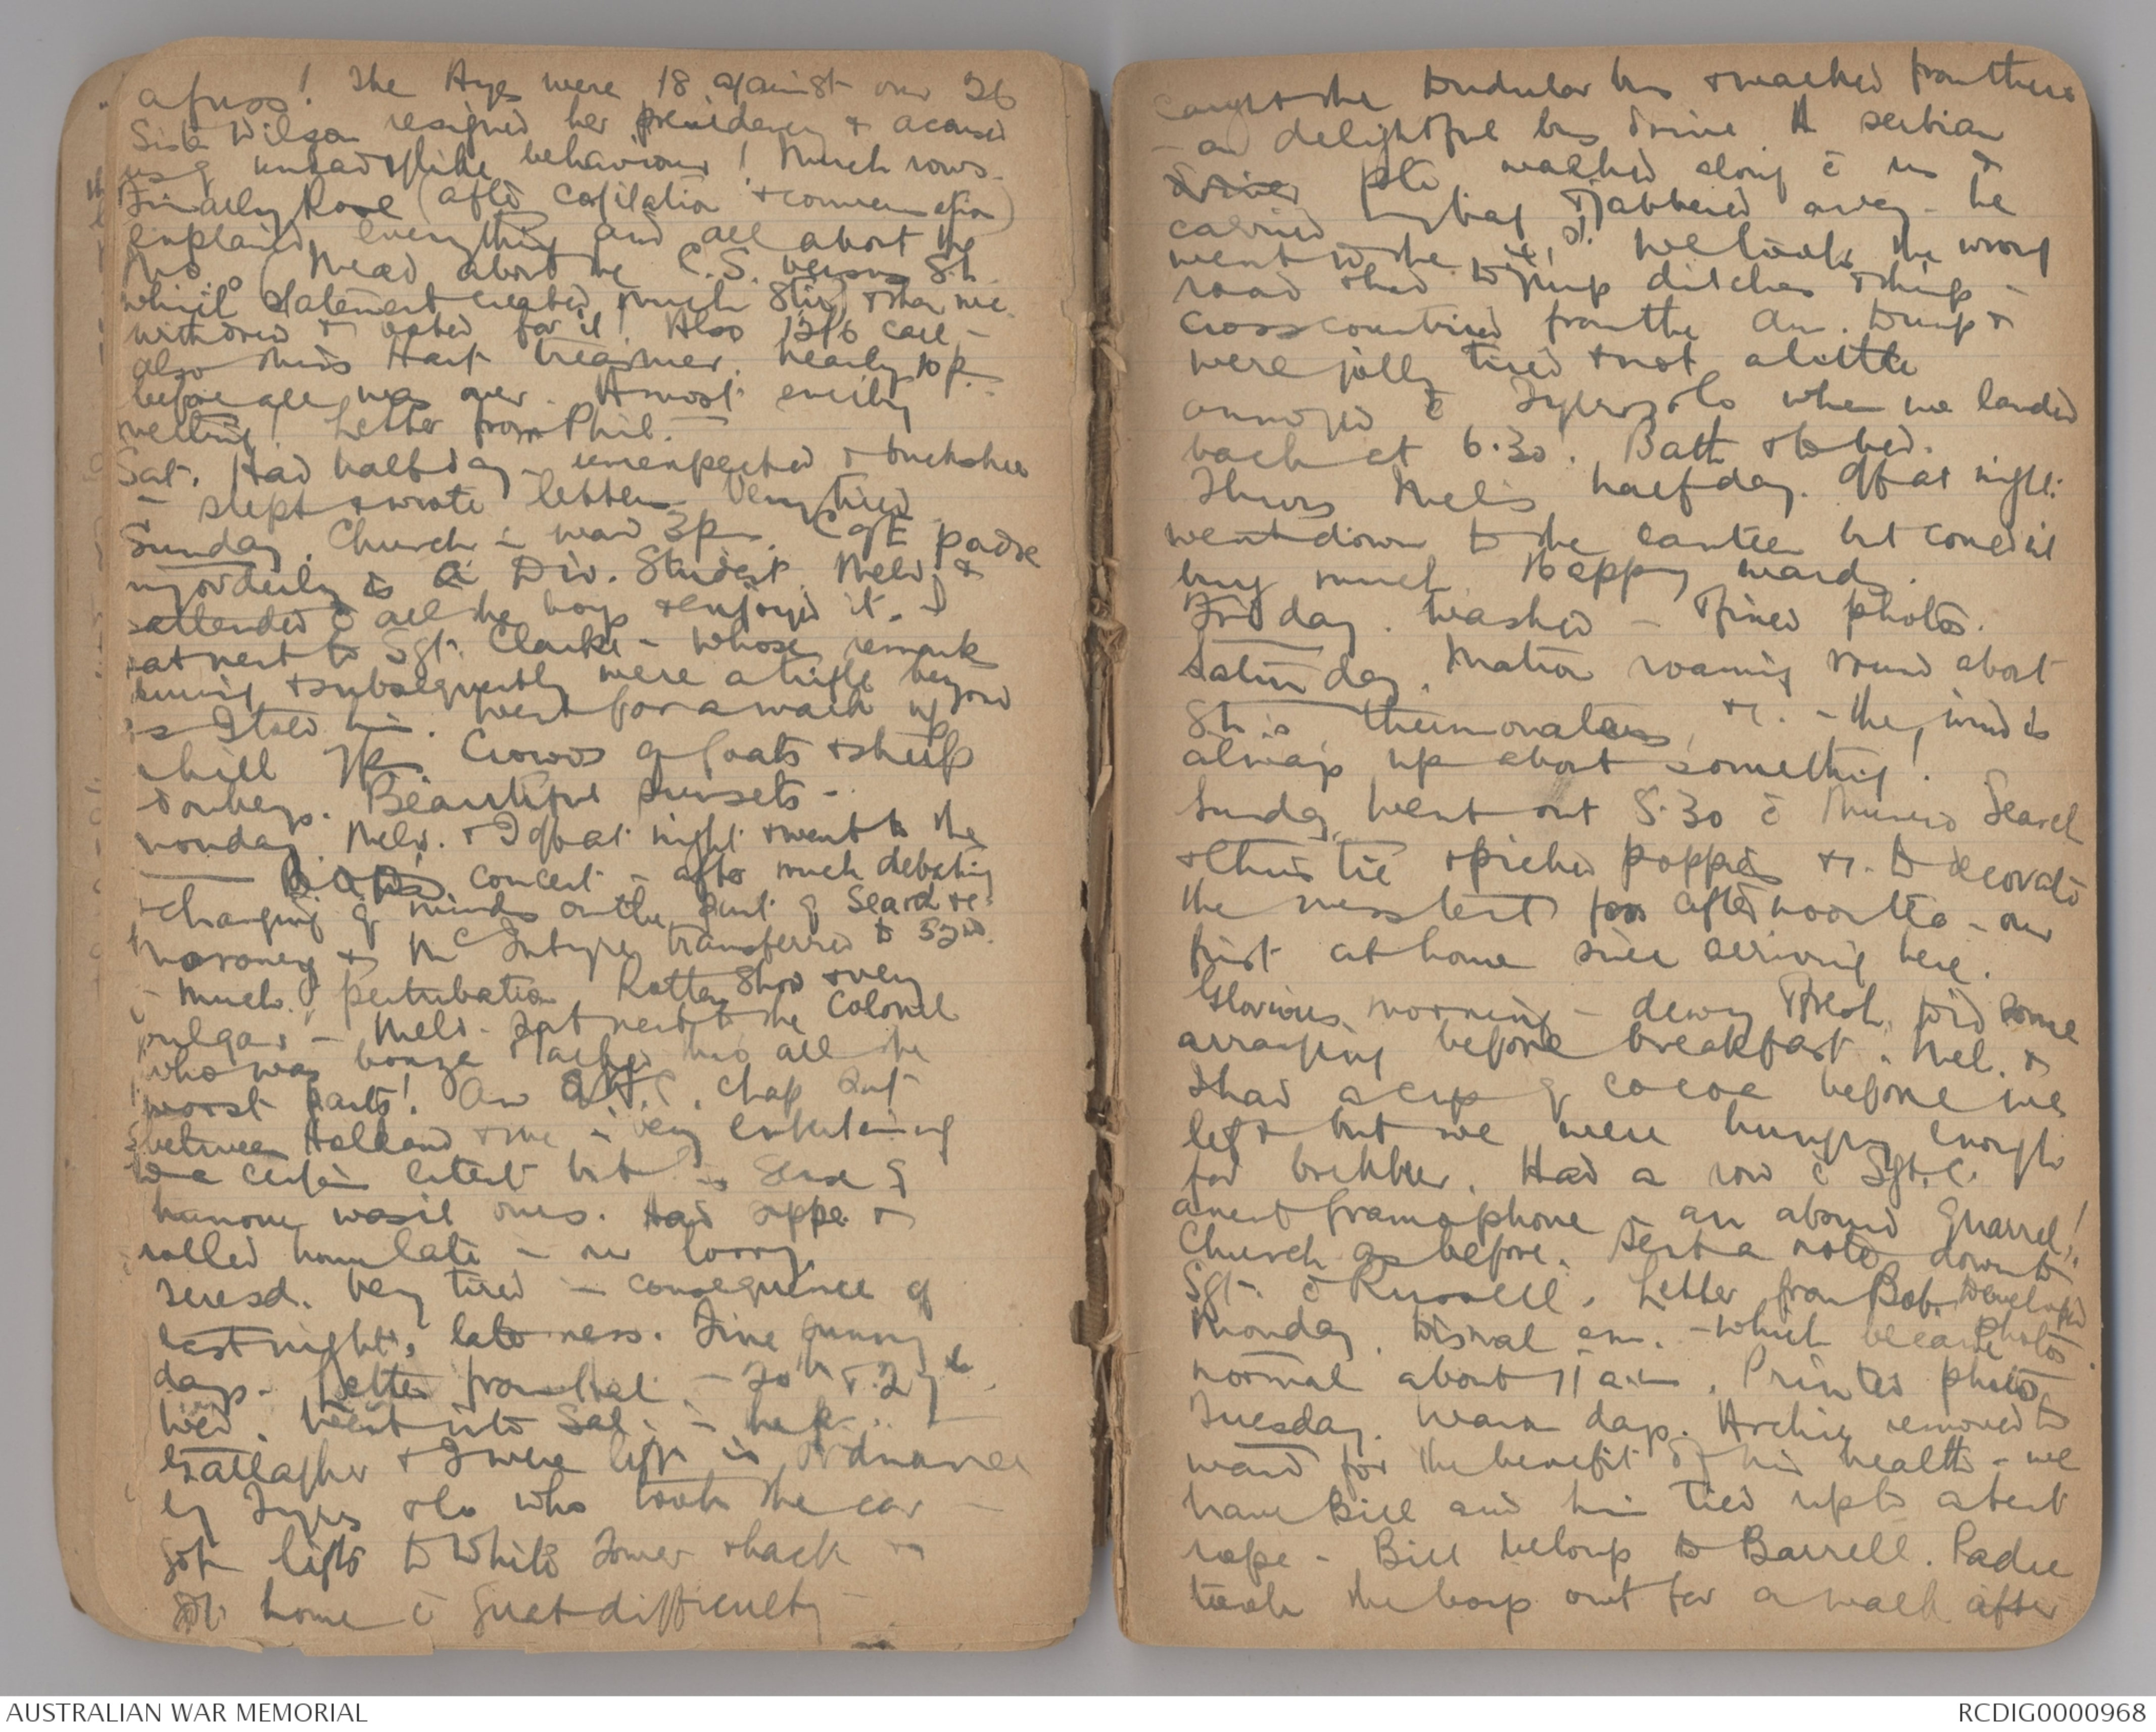 a fuss! The Ayes were 18 against our 26
Sister Wilson resigned her presidency & accused
us of unladylike behaviour! Much rows.
Finally Rose (after &
explained everything and all about the
(Mead about the C.S. versus S.h.
which statement created much stir) & then we
withdrew & voted for it! Also case -
also Miss Hart treasurer. Nearly 10 p.
before all was over. A most
meeting! Letter from Phil. -
Sat. Had half day - unexpected &
- slept & wrote letters. Very tired
Sunday. Church in ward 3p. C of E padre
my orderly is a Div. Student. Mel &
attended c all the boys & enjoyed it. I
sat next to Sgt. Clarke - whose remarks
during & subsequently were a trifle beyond
as I told him. Went for a walk up
a hill 7p. Crowds of goats & sheep
donkeys. Beautiful sunsets -
Monday. Mel. & I off at night & went to the
concert - after much debating
& changing of minds on the part of Searl &
Moroney & McIntyre transferred to
- Much perturbation. Rotten Show & very
vulgar - Mel. sat next to the Colonel
who was & thro all the
worst parts! An chap sat
between Holland & me - very entertaining
to a certain extent but his sense of
humour wasn't ours. Had supper &
rolled home late - our lorry.
Tuesd. Very tired - consequence of
last night's lateness. Fine sunny
days. Letter from Hal - 20th & 27th.
Wed. Went into Sal.
Gallagher & I were left in Ordnance
by & Co who took the car -
got lifts to White Tower & back &
got home c great difficulty -
caught the Dudular bus & walked from there
- a delightful bus drive. A serbian
driver walked along c us &
carried my bag & jabbered away - he
went to the We took the wrong
road & had to jump ditches & things -
cross countried from the Am. Dump &
were jolly tired & not a little
annoyed c & Co when we landed
back at 6.30! Bath & to bed.
Thurs Mel's half day. Off at night:
went down to the canteen but couldn't
buy much. Happy ward.
Friday. Washed - & fixed photos.
Saturday. Matron roaming round about
- the wind is
always up about something!
Sunday. Went out 5.30 c Searl
& Christie & picked poppies &c. to decorate
the mess tent for afternoon tea - our
first at home since arriving here.
Glorious morning - dewy & fresh, did some
arranging before breakfast. Mel. &
I had a cup of cocoa before we
left but we were hungry enough
for brekker. Had a row c Sgt. C.
anent gramophone - an absurd quarrel!
Church as before. Sent a note down to
Sgt. c Russell. Letter from Bob. Developed
photos.
Monday. Dismal am. - which became
normal about 11 a.m. Printed photos.
Tuesday. Warm day. Archie removed to
ward for the benefit of his health - we
have Bill and him tied up to a tent
rope - Bill belongs to Barrell. Padre
took the boys out for a walk after
AUSTRALIAN WAR MEMORIAL
RCDIG0000968